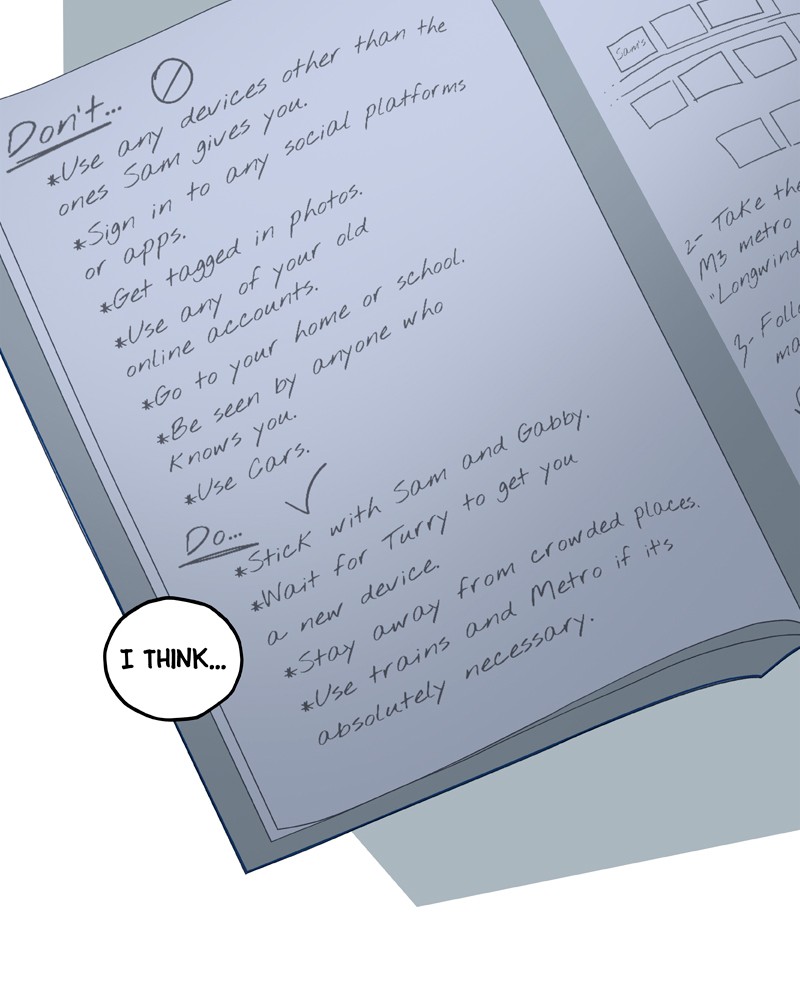 Don't...
*Use any devices other than the
ones Sam gives you.
*Sign in to any social platforms
or apps.
*Get tagged in photos.
*Use any of your old
online accounts.
*Go to your home or school.
*Be seen by anyone who
knows you.
*Use Cars.
Do...
*Stick with Sam and Gabby.
*Wait for Turry to get you
a new device.
*Stay away from crowded places.
*Use trains and Metro if it's
absolutely necessary.
I THINK...
Sam's
2- Take the
M3 metro
"Longwind
3- Follo
ma